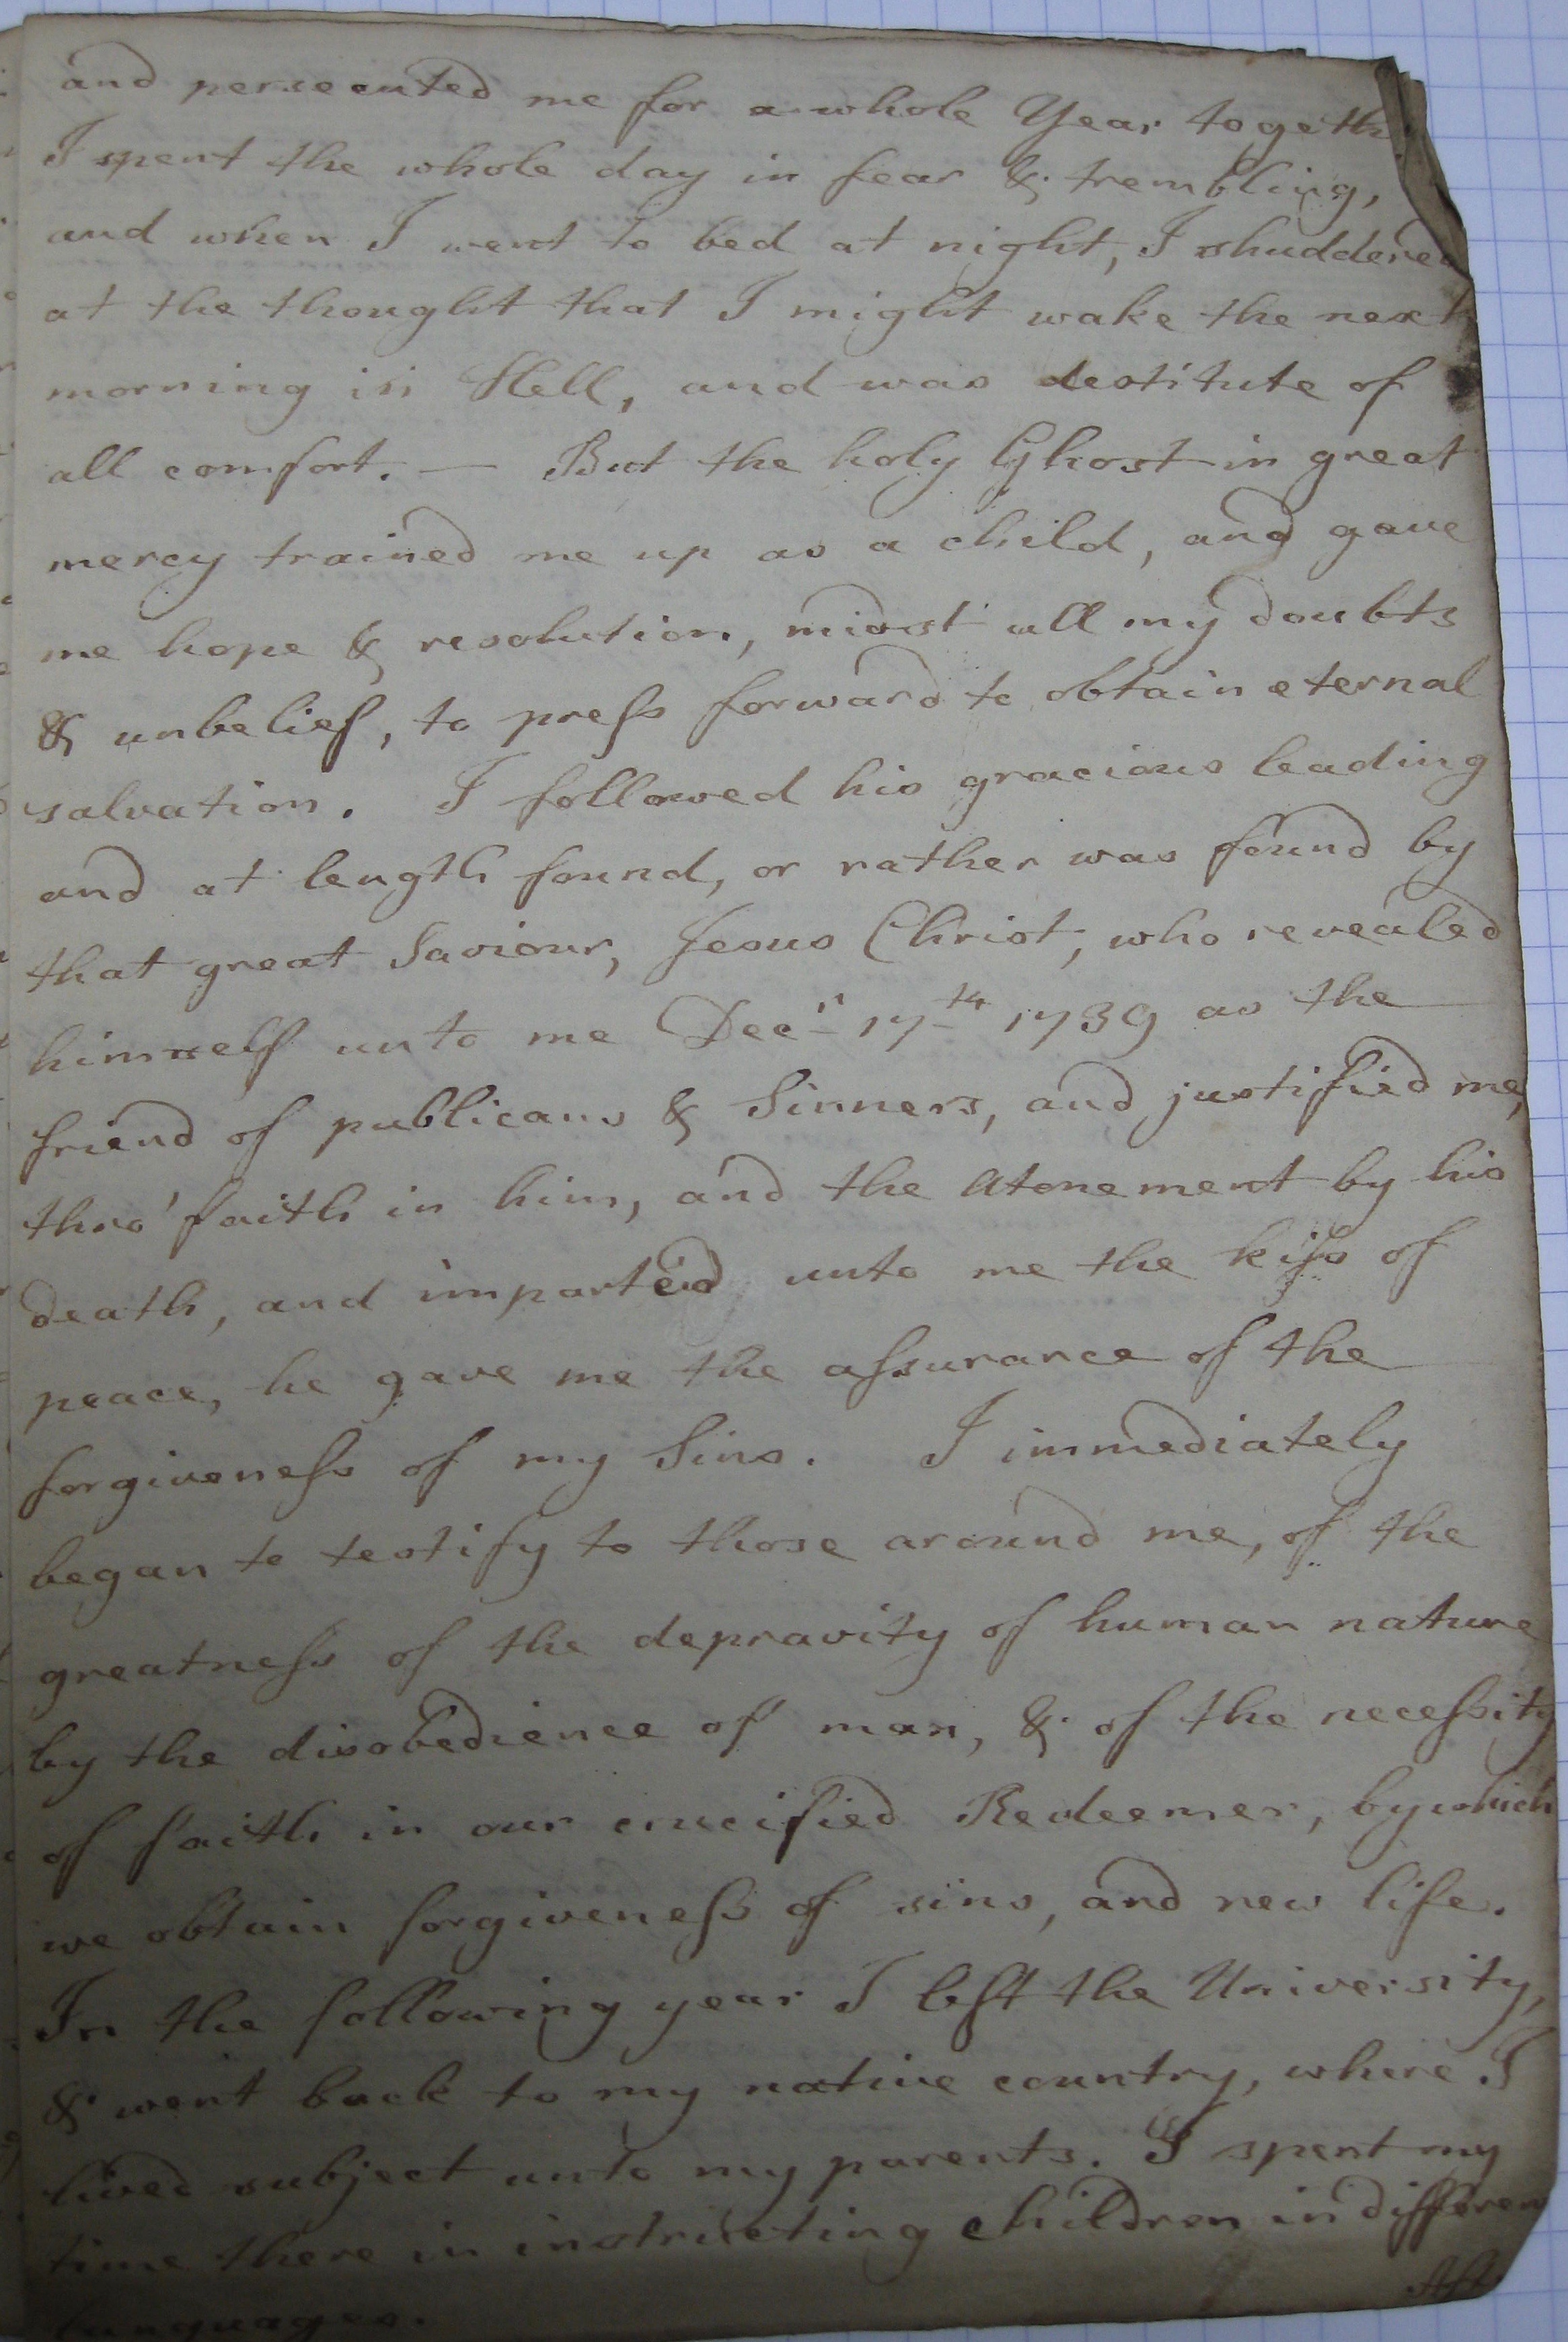 and persecuted me for a whole Year togeth
I spent the whole day in fear & trembling,
and when I went to bed at night, I shuddered
at the thought that I might wake the next
morning in Hell, and was destitute of
all comfort. — But the holy Ghost in great
mercy trained me up as a child, and gave
me hope & resolution, midst all my doubts
& unbelief, to press forward to obtain eternal
salvation. I followed his gracious leading
and at length found, or rather was found by
that great Saviour, Jesus Christ, who revealed
himself unto me Decr 17th 1739 as the
friend of publicans & Sinners, and justified me,
thro' faith in him, and the Atonement by his
death, and imparted unto me the kiss of
peace, he gave me the assurance of the
forgiveness of my Sins. I immediately
began to testify to those around me, of the
greatness of the depravity of human nature
by the disobedience of man, & of the necessity
of faith in our crucified Redeemer, by which
we obtain forgiveness of sins, and new life.
In the following year I left the University,
& went back to my native country, where I
lived subject unto my parents. I spent my
time there in instructing children in differen
languages.